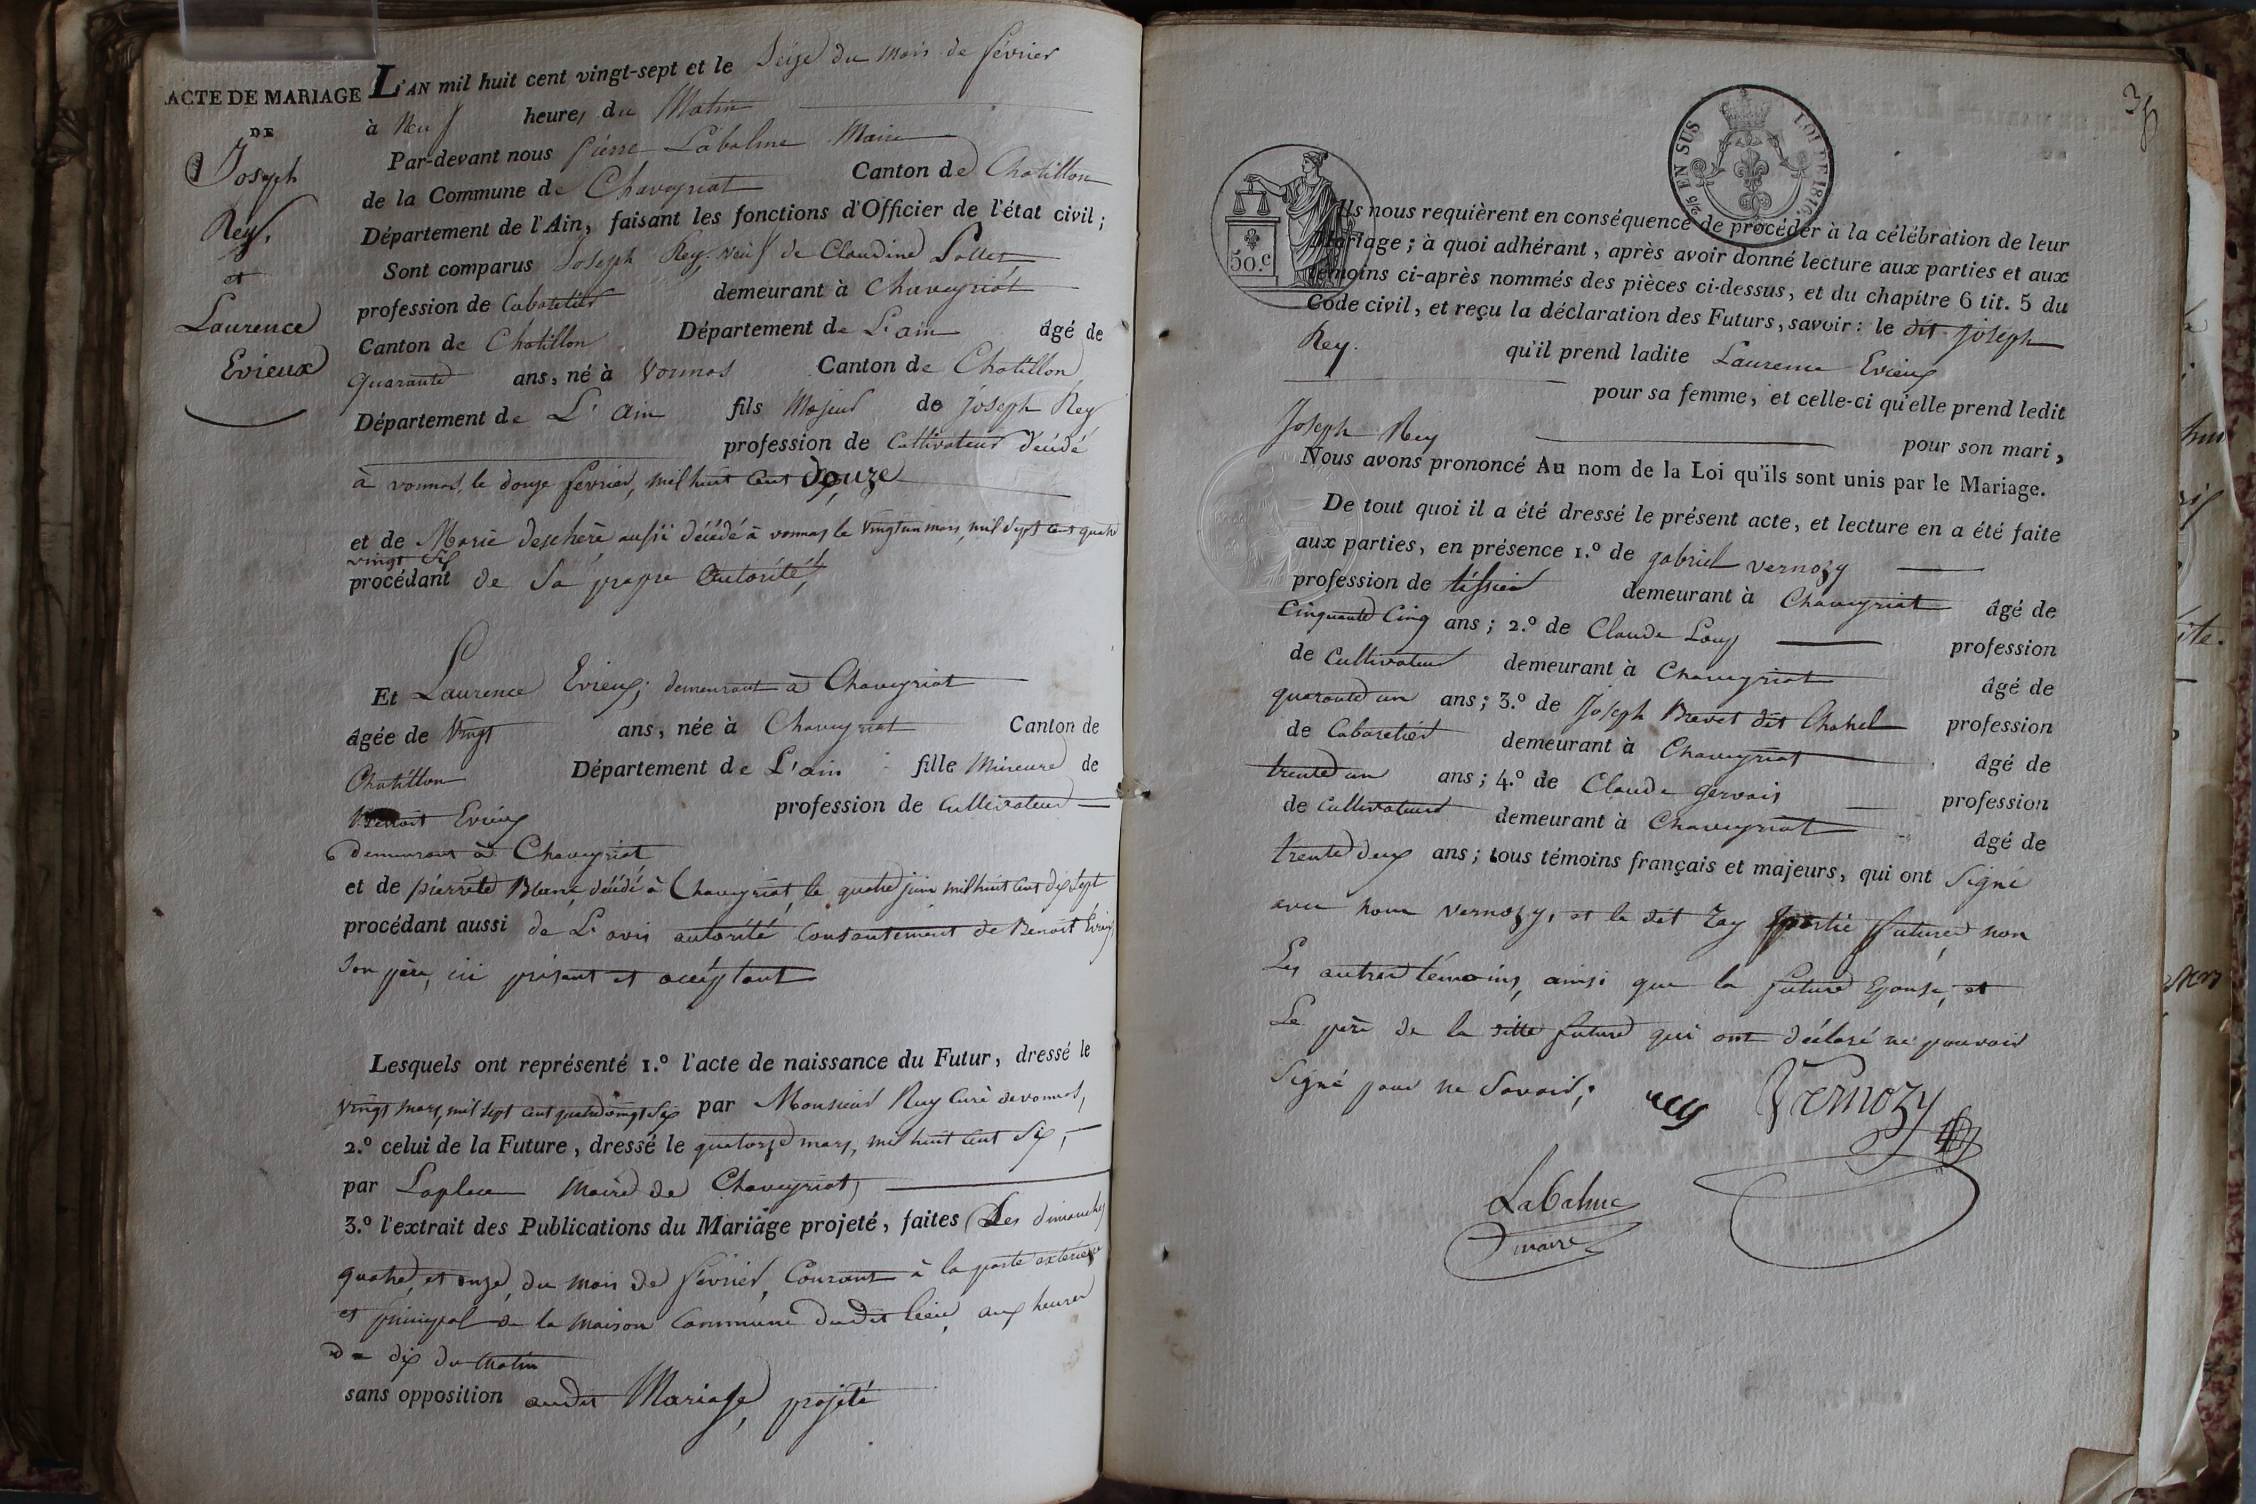 ACTE DE MARIAGE
DE
Joseph
Rey,
et
Laurence
Evieux
L'AN mil huit cent vingt-sept et le Seize du mois de février
à Neuf heures du Matin
Par-devant nous pierre Labalme Maire
de la Commune de Chaveyriat Canton de Chatillon
Département de l'Ain, faisant les fonctions d'Officier de l'état civil ;
Sont comparus Joseph Rey, veuf de Claudine
profession de Cabaretier demeurant à Chaveyriat
Canton de Chatillon Département de L'ain âgé de
quarante ans, né à Vonnas Canton de Chatillon
Département de L'ain fils Majeur de Joseph Rey
profession de Cultivateur décédé
à vonnas, le douze février, mil huit cent Douze
et de Marie deschere aussi décédé à vonnas le vingt un mars, mil sept cent quatre
vingt
procédant de Sa propre autorité,
Et Laurence Evieux, demeurant à Chaveyriat
âgée de vingt ans, née à Chaveyriat Canton de
Chatillon Département de L'ain fille Mineure de
Benoit Evieux profession de Cultivateur
demeurant à Chaveyriat
et de pierrete Blanc, décédé à Chaveyriat, le quatre juin mil huit cent dix sept
procédant aussi de L'avis autorité Consantement de Benoit Evieux
Son père, ici présent et acceptant
Lesquels ont représenté 1.º l'acte de naissance du Futur, dressé le
vingt mars, mil sept cent quatre vingt six par Monsieur Ruy Curé de vonnas,
2.º celui de la Future, dressé le quatorze mars, mil huit cent Six,
par Laplace Maire de Chaveyriat,
3.º l'extrait des Publications du Mariage projeté, faites Les dimanches
quatre, et onze, du mois de février, Courant à la porte exterieure
et principal de la Maison Commune dudit lieu, aux heures
de dix du Matin
sans opposition audit Mariage, projeté
38
25 EN SUS LOI DE 1816.
50.c
Ils nous requièrent en conséquence de procéder à la célébration de leur
Mariage ; à quoi adhérant, après avoir donné lecture aux parties et aux
témoins ci-après nommés des pièces ci-dessus, et du chapitre 6 tit. 5 du
Code civil, et reçu la déclaration des Futurs, savoir : le dit Joseph
Rey. qu'il prend ladite Laurence Evieux
pour sa femme, et celle-ci qu'elle prend ledit
Joseph Rey pour son mari,
Nous avons prononcé Au nom de la Loi qu'ils sont unis par le Mariage.
De tout quoi il a été dressé le présent acte, et lecture en a été faite
aux parties, en présence 1.º de gabriel vernozy
profession de tissier demeurant à Chaveyriat âgé de
Cinquante Cinq ans ; 2.º de Claude Loup profession
de Cultivateur demeurant à Chaveyriat âgé de
quarante un ans ; 3.º de Joseph Brevet dit Chatel profession
de Cabaretier demeurant à Chaveyriat âgé de
trente un ans ; 4.º de Claude gervais profession
de Cultivateur demeurant à Chaveyriat âgé de
trente deux ans ; tous témoins français et majeurs, qui ont Signé
avec nous vernozy, et le dit Rey partie future non
Les autres témoins, ainsi que la future Epouse, et
Le père de la ditte future qui ont déclaré ne pouvoir
Signé pour ne Savoir,
Rey Vernozy
LaBalme
maire